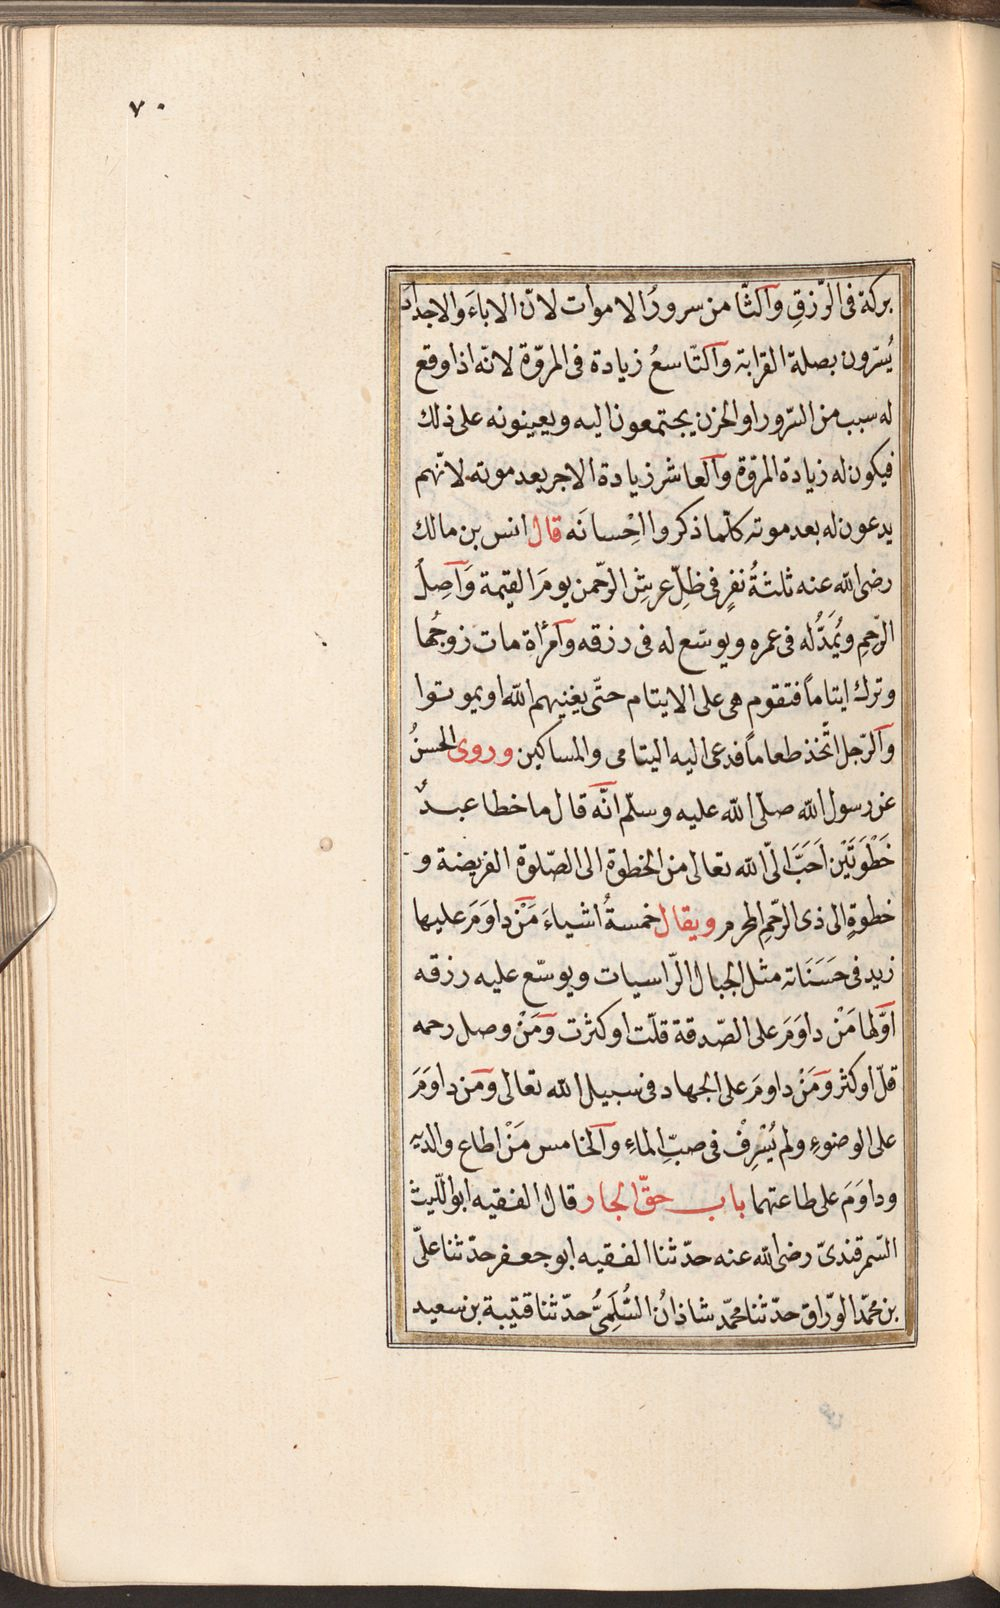 ٧٠
بركة فى الرّزقِ والثّامن سرورُ الاموات لانّ الاباءَ والاجدادَ
يُسّرون بصلة القرابة والتّاسعُ زيادة فى المروّة لانّه اذا وقع
له سبب من السّرور او الحزن يجتمعون اليه ويعينونه على ذلك
فيكون له زيادة المروّة والعاشر زيادة الاجر بعد موته لانّهم
يدعون له بعد موته كلّما ذكروا اِحْسانَه قال انس بن مالك
رضى الله عنه ثلثةُ نفرٍ فى ظلِّ عرشِ الرّحمن يومَ القيمة وَاصِلُ
الرّحِمِ ويُمَدُّ له فى عمره ويوسّع له فى رزقه وامرأة مات زوجُها
وترك ايتاماً فتقوم هى على الايتام حتّى يغنيهم الله او يموتوا
والرّجل اتّخذ طعاماً فدعى اليه اليتامى والمساكين وروى الحسنُ
عن رسول الله صلّى الله عليه وسلّم انّه قال ما خطا عبدٌ
خَطْوَتَيْن اَحَبَّ الَى الله تعالى من الخطوة الى الصّلوة الفريضة و
خطوةٍ الى ذى الرّحِمِ المحرم ويقال خمسةُ اشياءَ مَنْ داوَمَ عليها
زيد فى حَسَنَاته مثل الجبال الرّاسيات ويوسّع عليه رزقه
اوّلها مَنْ داوَمَ على الصّدقة قلّت او كثرت ومَنْ وصل رحمه
قلّ او كثر ومَنْ داومَ على الجهاد فى سبيل الله تعالى ومن داوَمَ
على الوضوءِ ولم يُسْرِفْ فى صبِّ الماءِ والخامس مَنْ اطاع والديه
وداوَمَ على طاعتهما باب حقّ الجار قال الفقيه ابو اللّيث
السّمرقندىّ رضى الله عنه حدّثنا الفقيه ابو جعفر حدّثنا علىّ
بن محمّد الورّاق حدّثنا محمّد شاذانُ السُّلَمِىُّ حدّثنا قتيبة بن سعيد